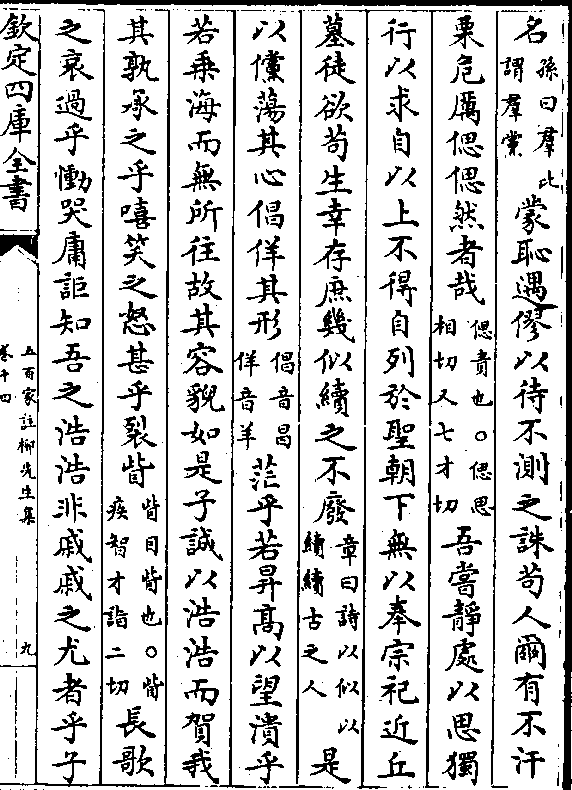 名孫曰羣比謂羣黨蒙恥遇僇以待不測之誅苟人爾有不汗
栗危厲偲偲然者哉偲責也○偲思相切又七才切吾嘗靜處以思獨
行以求自以上不得自列於聖朝下無以奉宗祀近丘
墓徒欲苟生幸存庶幾似續之不廢章曰詩以似以續續古之人是
以儻蕩其心倡佯其形倡音昌佯音羊茫乎若昇髙以望潰乎
若乗海而無所往故其容貌如是子誠以浩浩而賀我
其孰承之乎嘻笑之怒甚乎裂眥眥目眥也○眥疾智才詣二切長歌
之哀過乎慟哭庸詎知吾之浩浩非戚戚之尤者乎子
欽定四庫全書
五百家註柳先生集
卷十四
九